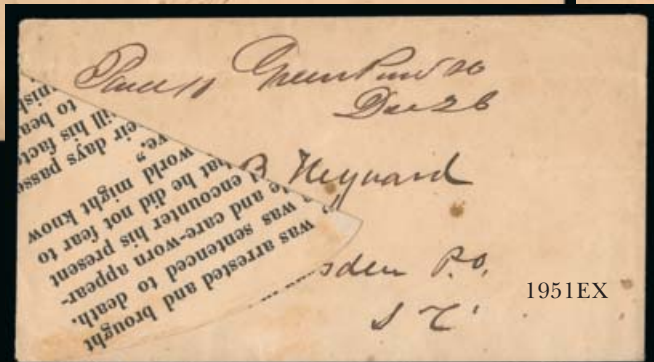 Paid 10 Green Pond SC
Dec 26
B Heyward
sden P.O.
S C
was arrested and brought
was sentenced to death.
and care-worn appear-
encounter his present
hat he did not fear to
world might know
ve."
eir days passe
ill his facto
to bea
nish
1951EX